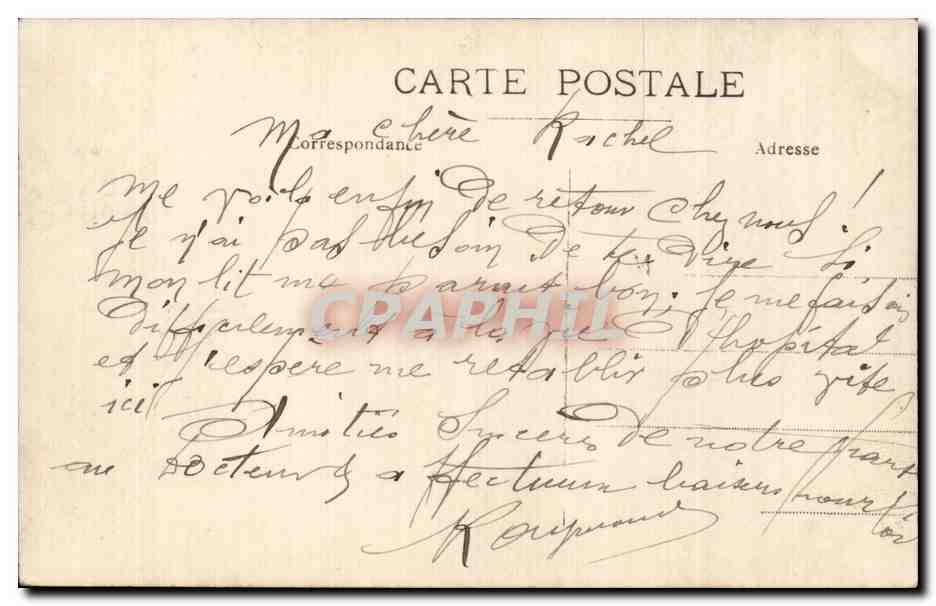 CARTE POSTALE
Ma chère Rachel
Correspondance
Adresse
me voilà enfin de retour chez nous !
Je n'ai pas besoin de te dire si
mon lit me parait bon. Je me faisais
difficilement à la vie d'hopital
et j'espère me retablir plus vite
ici
Amitiés sincères de notre part
au Docteur & affectueux baisers pour toi
CPAPHIL